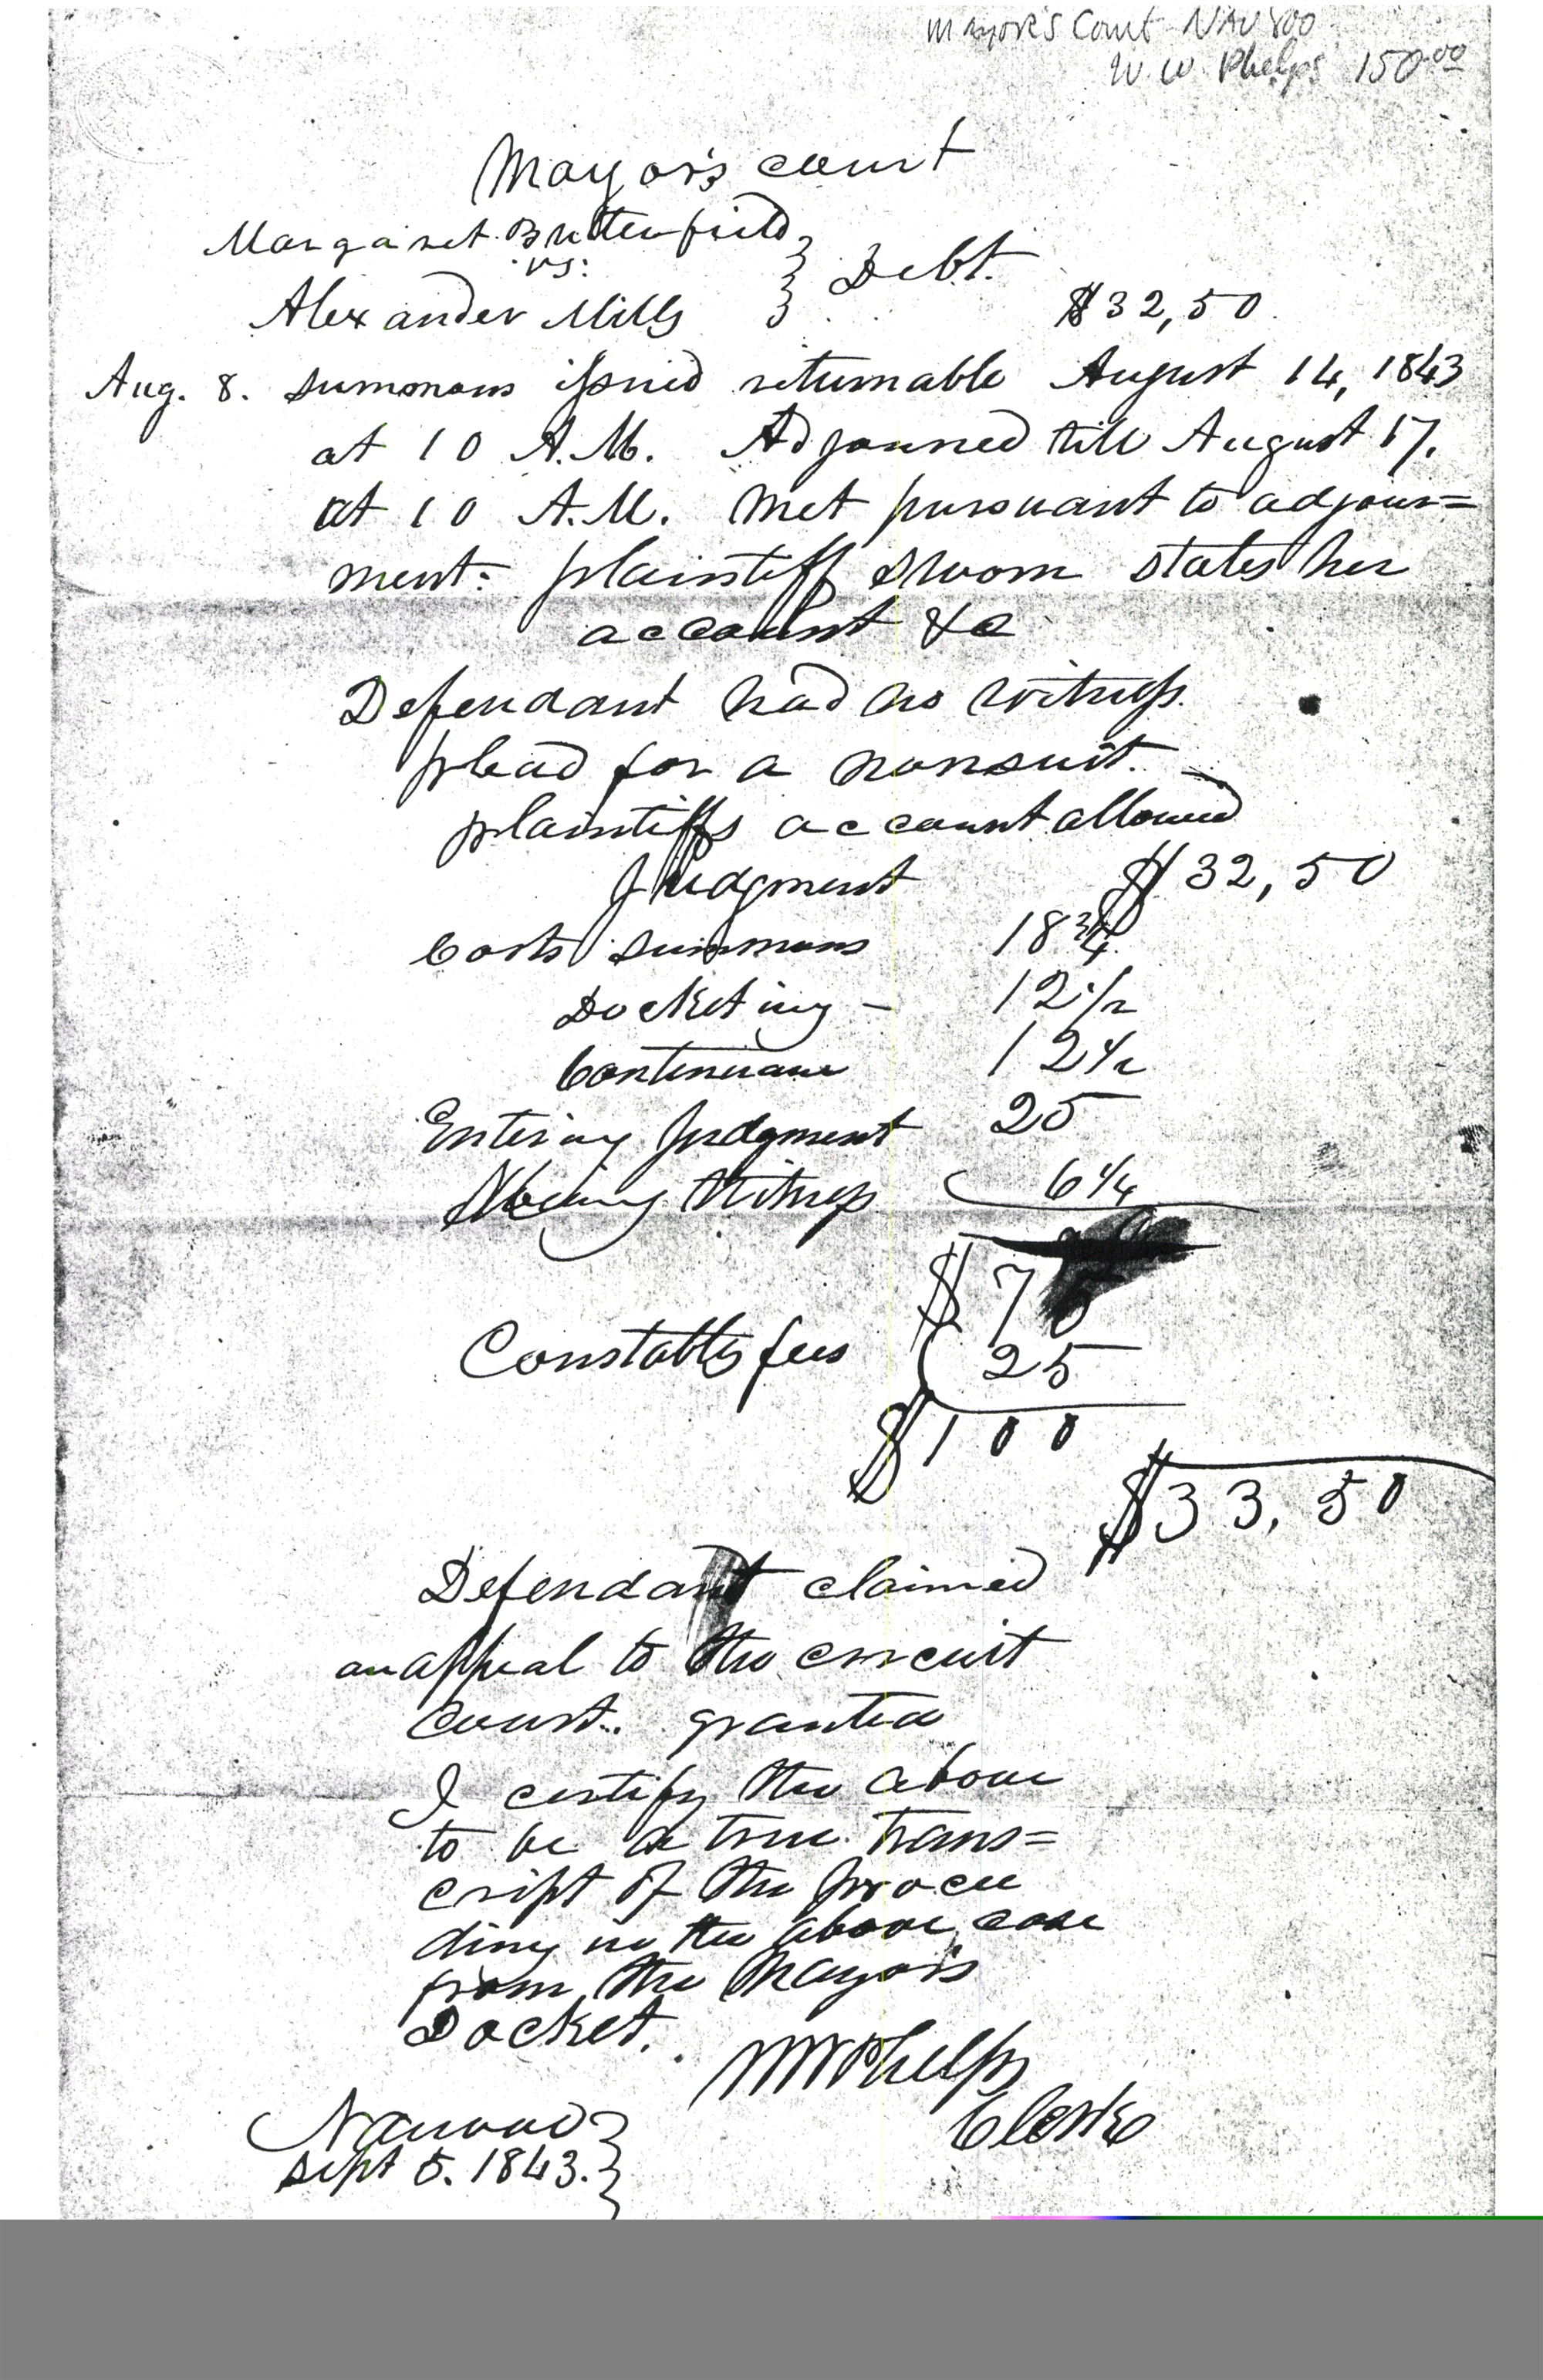 Mayor's Court NAUVOO
W. W. Phelps 150.00
Mayor's court
Margaret Butterfield
vs:
Debt.
Alexander Mills
$32,50
Aug. 8. summons issued returnable August 14, 1843
at 10 A.M. Adjourned till August 17.
at 10 A.M. Met pursuant to adjour=
ment: plaintiff sworn states her
account &c
Defendant had no witness.
plead for a nonsuit.
plaintiffs account allowed
Judgment $32,50
Costs summons 18 3/4
Docketing – 12 1/2
Continuance 12 1/2
Entering Judgment 25
Witness 6 1/4
$75
Constables fees 25
$100
$33,50
Defendant claimed
an appeal to the circuit
court. granted
I certify the above
to be a true trans=
cript of the procee
ding in the above case
from the Mayor's
Docket.
W W Phelps
Clerk
Nauvoo
Sept 5. 1843.